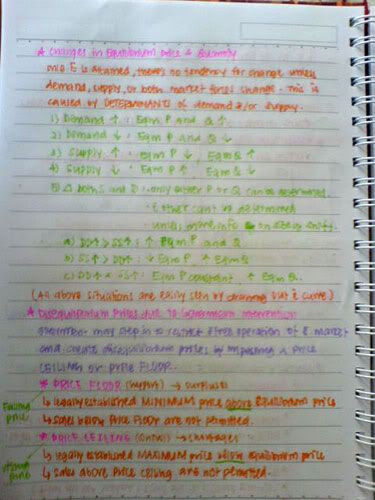 * Changes in Equilibrium price & Quantity
once E is attained, there's no tendency for change unless
demand, supply, or both market forces change. This is
caused by DETERMINANTS of demand &/or supply.
1) Demand ↑ : Eqm P and Q ↑
2) Demand ↓ : Eqm P and Q ↓
3) Supply ↑ : Eqm P ↓ Eqm Q ↑
4) Supply ↓ : Eqm P ↑ Eqm Q ↓
5) Δ both S and D : only either P or Q can be determined
Either can't be determined
unless more info on
a) DD↑ > SS↑ : ↑ Eqm P and Q
b) SS↑ > DD↑ : ↓ Eqm P ↑ Eqm Q
c) DD↑ = SS↑ : Eqm P constant ↑ Eqm Q
(All above situations are easily seen by drawing out curve)
* Disequilibrium Prices due to Government intervention
Government may step in to restrict free operation of market
and create disequilibrium prices by imposing a PRICE
CEILING or PRICE FLOOR.
* PRICE FLOOR → surpluses
Falling price
↳ legally established MINIMUM price above equilibrium price
↳ sales below Price Floor are not permitted.
* PRICE CEILING → shortages
↳ legally established MAXIMUM price below equilibrium price
price
↳ sales above price ceiling are not permitted.